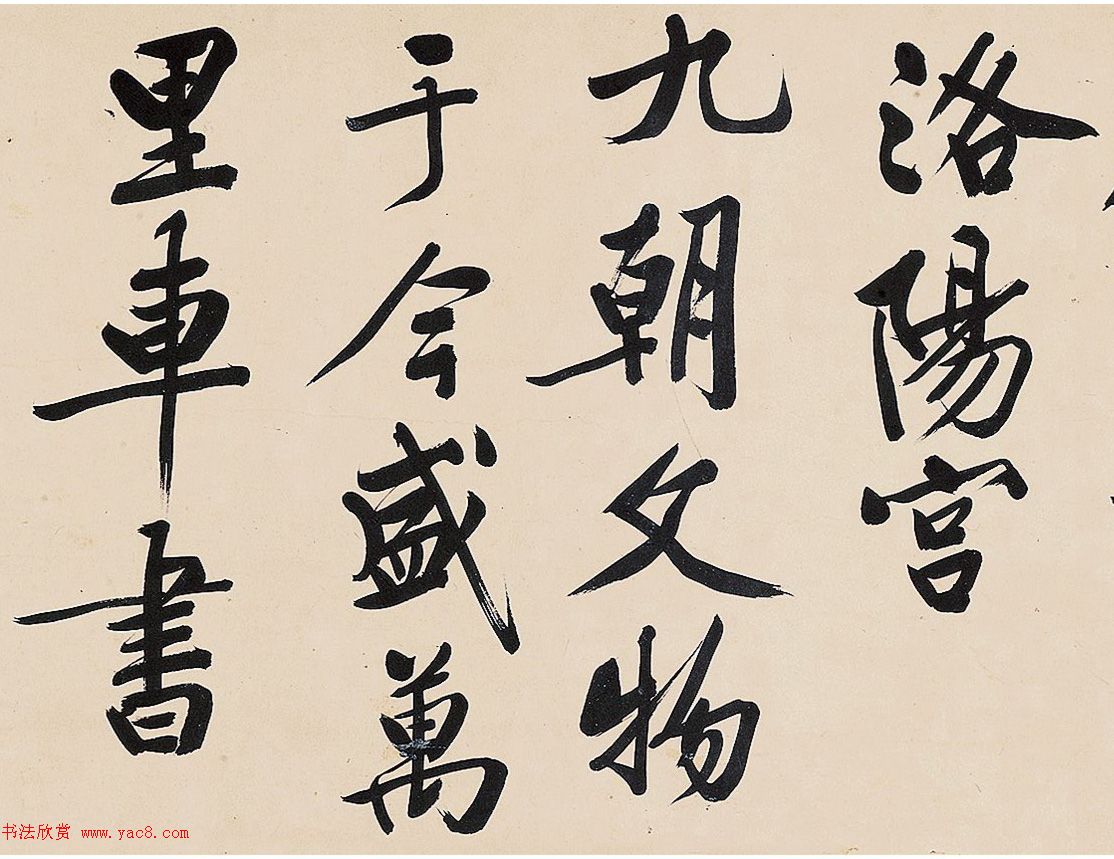 洛陽宫
九朝文物
于今盛萬
里車書
书法欣赏 www.yac8.com